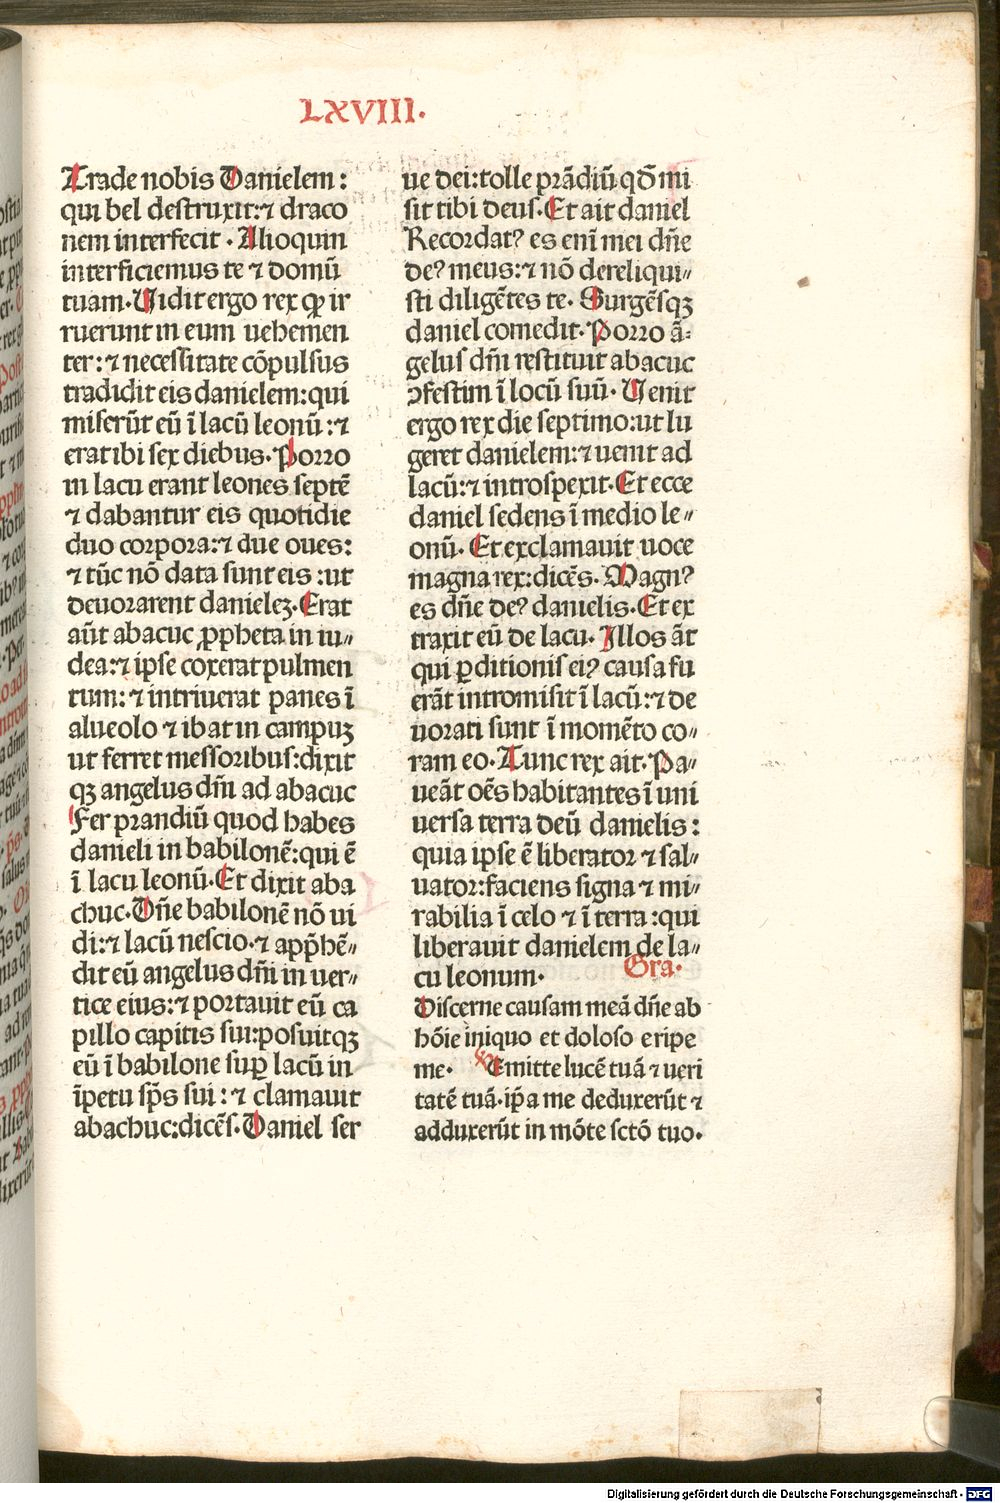 LXVIII.
Trade nobis Danielem:
qui bel destruxit:⁊ draco
nem interfecit. Alioquin
interficiemus te ⁊ domū
tuam. Uidit ergo rex ꝙ ir
ruerunt in eum uehemen
ter:⁊ necessitate cōpulsus
tradidit eis danielem:qui
miserūt eū ī lacū leonū:⁊
erat ibi sex diebus. Porro
in lacu erant leones septē
⁊ dabantur eis quotidie
duo corpora:⁊ due oues:
⁊ tūc nō data sunt eis:ut
deuorarent danielez. Erat
aūt abacuc ꝓpheta in iu⸗
dea:⁊ ipse coxerat pulmen
tum:⁊ intriuerat panes ī
alueolo ⁊ ibat in campuz
ut ferret messoribus:dixit
qꝫ angelus dñi ad abacuc
Fer prandiū quod habes
danieli in babilonē:qui ē
ī lacu leonū. Et dixit aba
chuc. Dñe babilonē nō ui
di:⁊ lacū nescio. ⁊ app̄hē⸗
dit eū angelus dñi in uer⸗
tice eius:⁊ portauit eū ca
pillo capitis sui:posuitqꝫ
eū ī babilone suꝑ lacū in
īpetu sp̄s sui:⁊ clamauit
abachuc:dicēs. Daniel ser
ue dei:tolle prādiū qđ mi
sit tibi deus. Et ait daniel
Recordatꝰ es enī mei dñe
deꝰ meus:⁊ nō dereliqui⸗
sti diligētes te. Surgēsqꝫ
daniel comedit. Porro ā⸗
gelus dñi restituit abacuc
ꝯfestim ī locū suū. Uenit
ergo rex die septimo:ut lu
geret danielem:⁊ uenit ad
lacū:⁊ introspexit. Et ecce
daniel sedens ī medio le⸗
onū. Et exclamauit uoce
magna rex:dicēs. Magnꝰ
es dñe deꝰ danielis. Et ex
traxit eū de lacu. Illos āt
qui ꝑditionis eiꝰ causa fu
erāt intromisit ī lacū:⁊ de
uorati sunt ī momēto co⸗
ram eo. Tunc rex ait. Pa⸗
ueāt oēs habitantes ī uni
uersa terra deū danielis:
quia ipse ē liberator ⁊ sal⸗
uator:faciens signa ⁊ mi⸗
rabilia ī celo ⁊ ī terra:qui
liberauit danielem de la⸗
cu leonum. Gra.
Discerne causam meā dñe ab
hōie iniquo et doloso eripe
me. Emitte lucē tuā ⁊ ueri
tatē tuā. ip̄a me deduxerūt ⁊
adduxerūt in mōte sctō tuo.
Digitalisierung gefördert durch die Deutsche Forschungsgemeinschaft - DFG